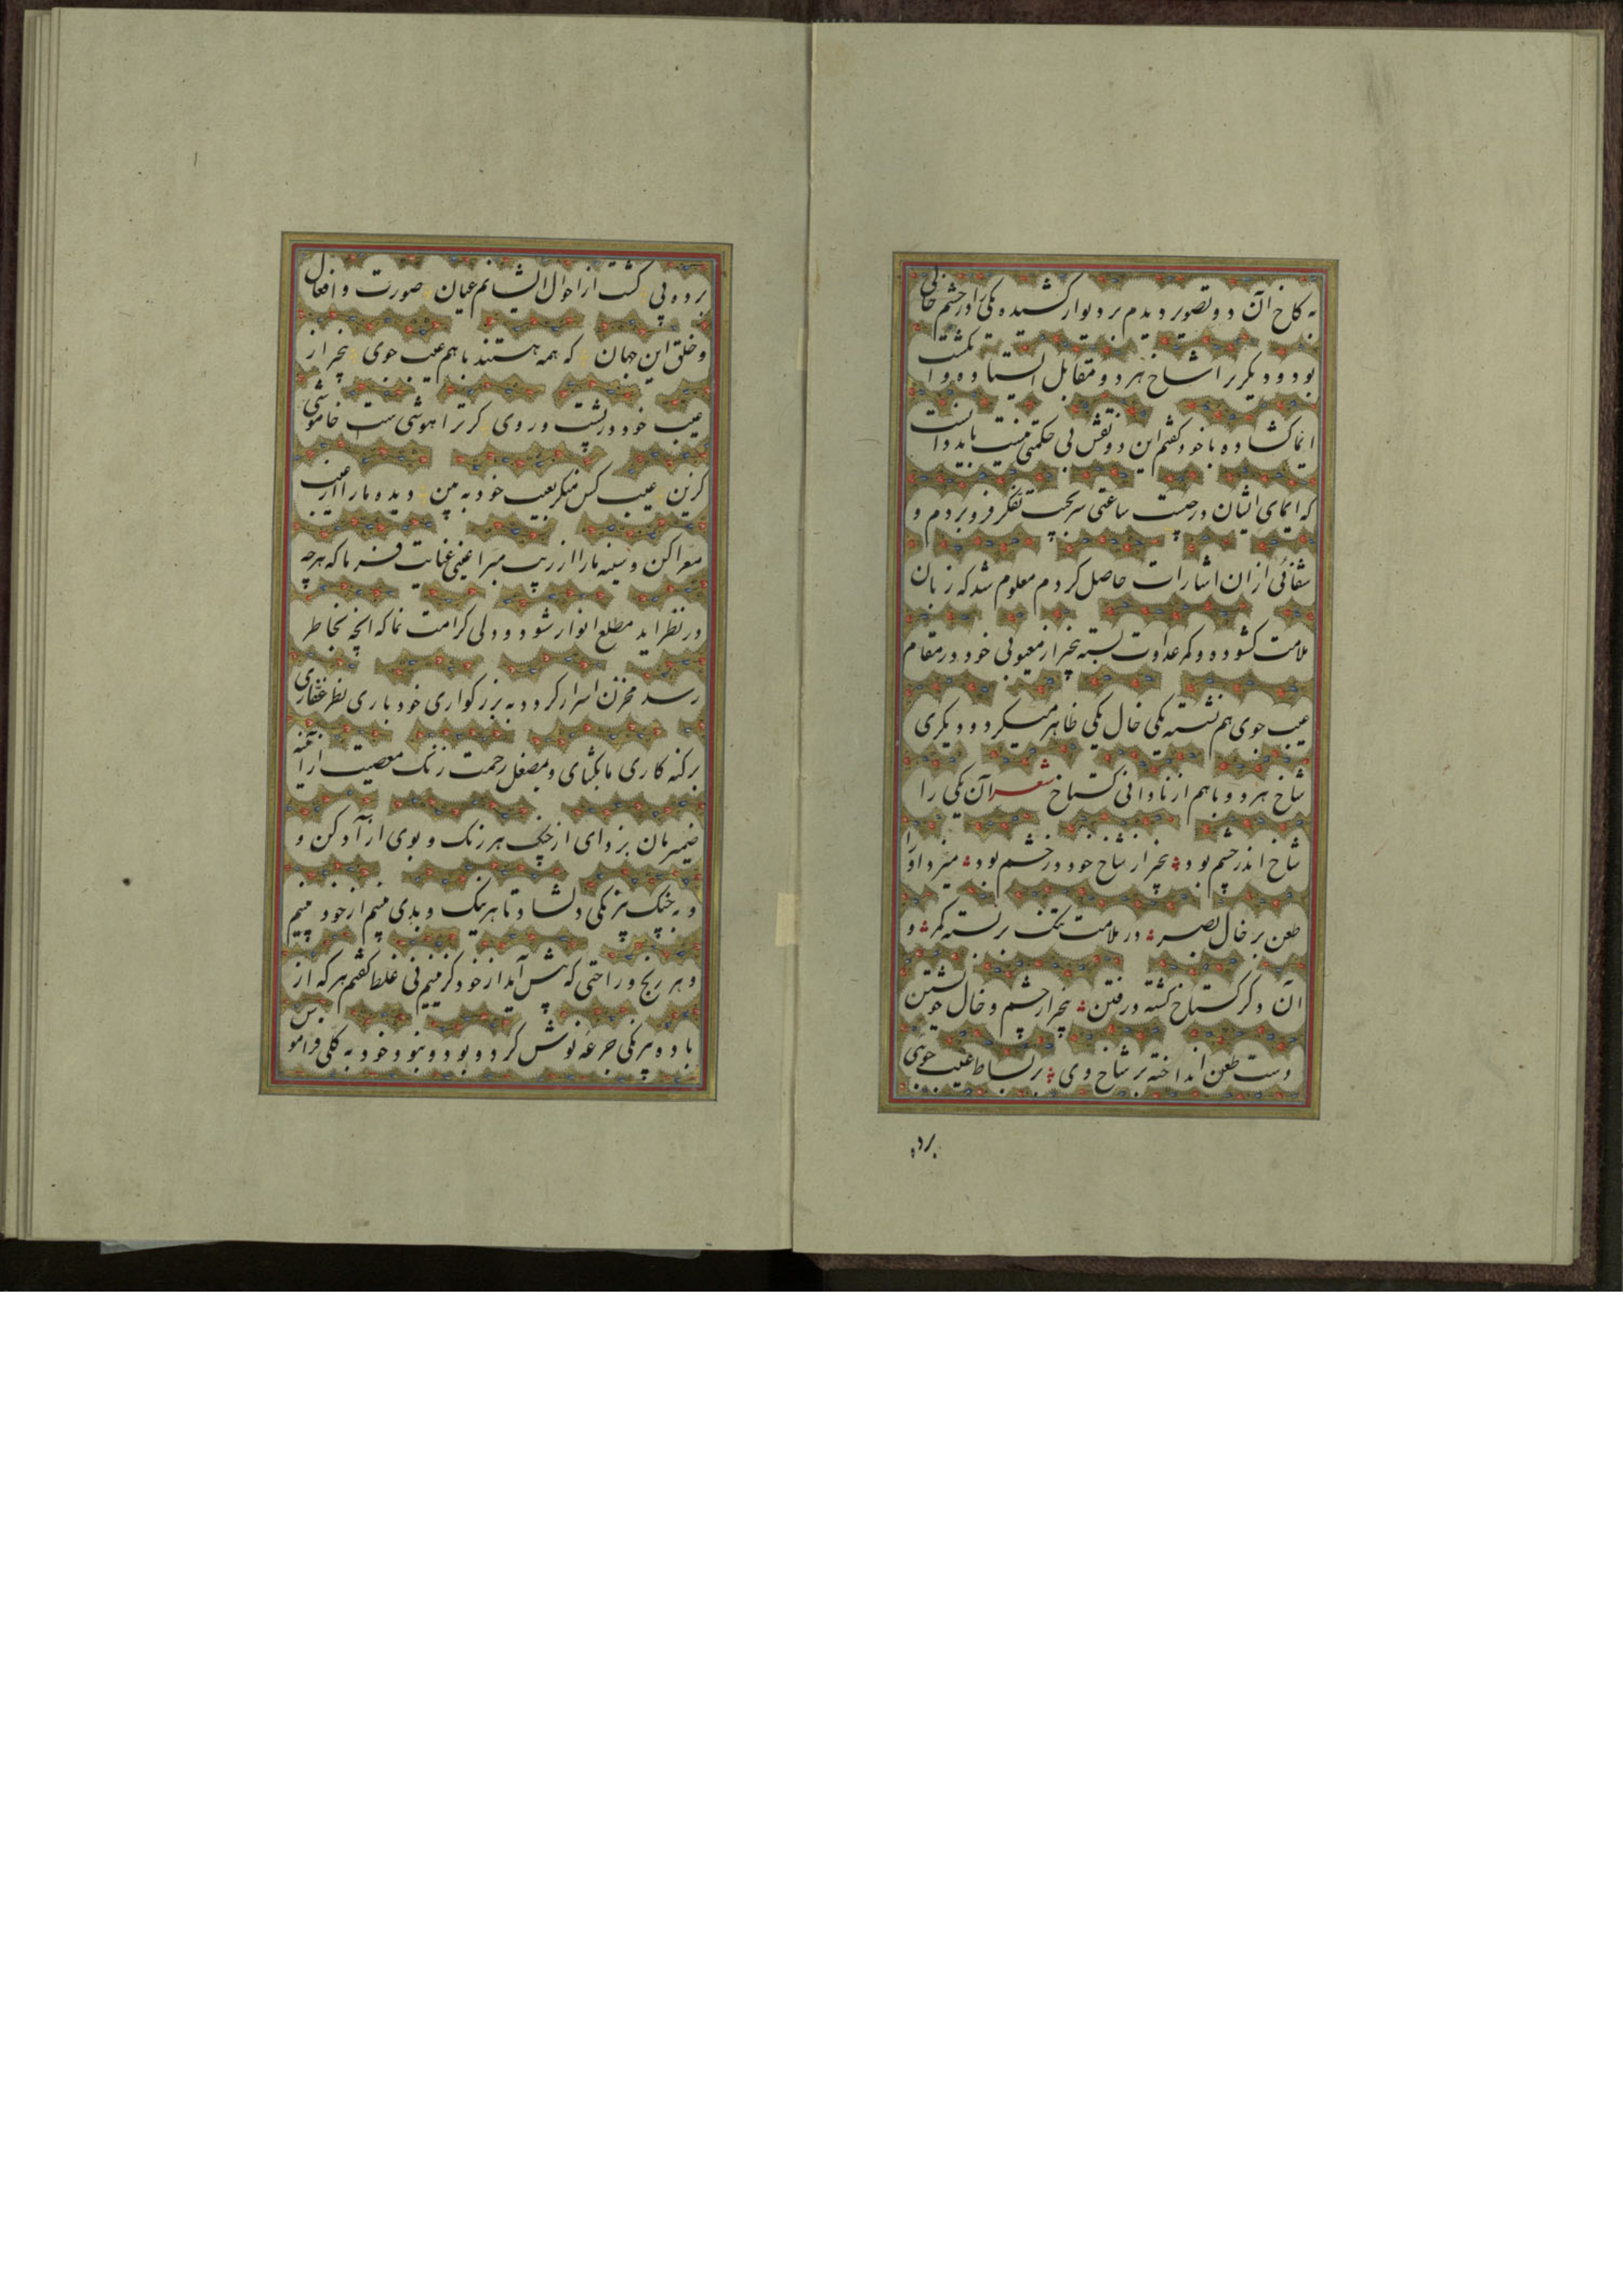 به کاخ آن دو تصویر دیدم بر دیوار کشیده یکی را در چشم خالی
بود و دیگریرا شاخ هر دو مقابل ایستاده و انگشت
ایما کشاده با خود گفتم این دو نقش بی حکمتی نیست باید دانست
که ایمای ایشان در چیست ساعتی سر بجیب تفکر فرو بردم و
شفائی ازان اشارات حاصل کردم معلوم شد که زبان
ملامت کشوده و کمر عداوت بسته بیخبر از معیوبی خود در مقام
عیب جوی هم نشسته یکی خال یکی ظاهر میکرد و دیگری
شاخ هر دو باهم از نادانی گستاخ شعر آن یکی را
شاخ اندر چشم بود بیخبر از شاخ خود در خشم بود میزد او را
طعن بر خال بصر در ملامت تنگ بربسته کمر و
آن دگر گستاخ گشته در فتن بیخبر از چشم و خال خویشتن
دست طعن انداخته بر شاخ وی بر بساط عیب جویی
برده
برده پی گشت از احوال ایشانم عیان صورت و افعال
و خلق این جهان که همه هستند باهم عیب جوی بیخبر از
عیب خود در پشت و روی گر ترا هوشی ست خاموشی
گزین عیب کس منگر بعیب خود به بین دیده ما را از عیب
معرا کن و سینه ما را از ریب مبرا عینی عنایت فرما که هرچه
در نظر اید مطلع انوار شود و دلی کرامت نما که انچه بخاطر
رسد مخزن اسرار گردد به بزرگواری خود باری نظر غفاری
بر گنه کاری ما بگشای و بمصقل رحمت زنگ معصیت از آئینه
ضمیرمان بزدای از چنگ هر رنگ و بوی ازآد کن و
و به چنگ بیرنگی دلشاد تا هر نیک و بدی بینیم از خود بینیم
و هر رنج و راحتی که پیش آید از خود گزینیم نی غلط گفتم هر که از
باده بیرنگی جرعه نوش کرد و بود و نبود خود به کلی فراموش